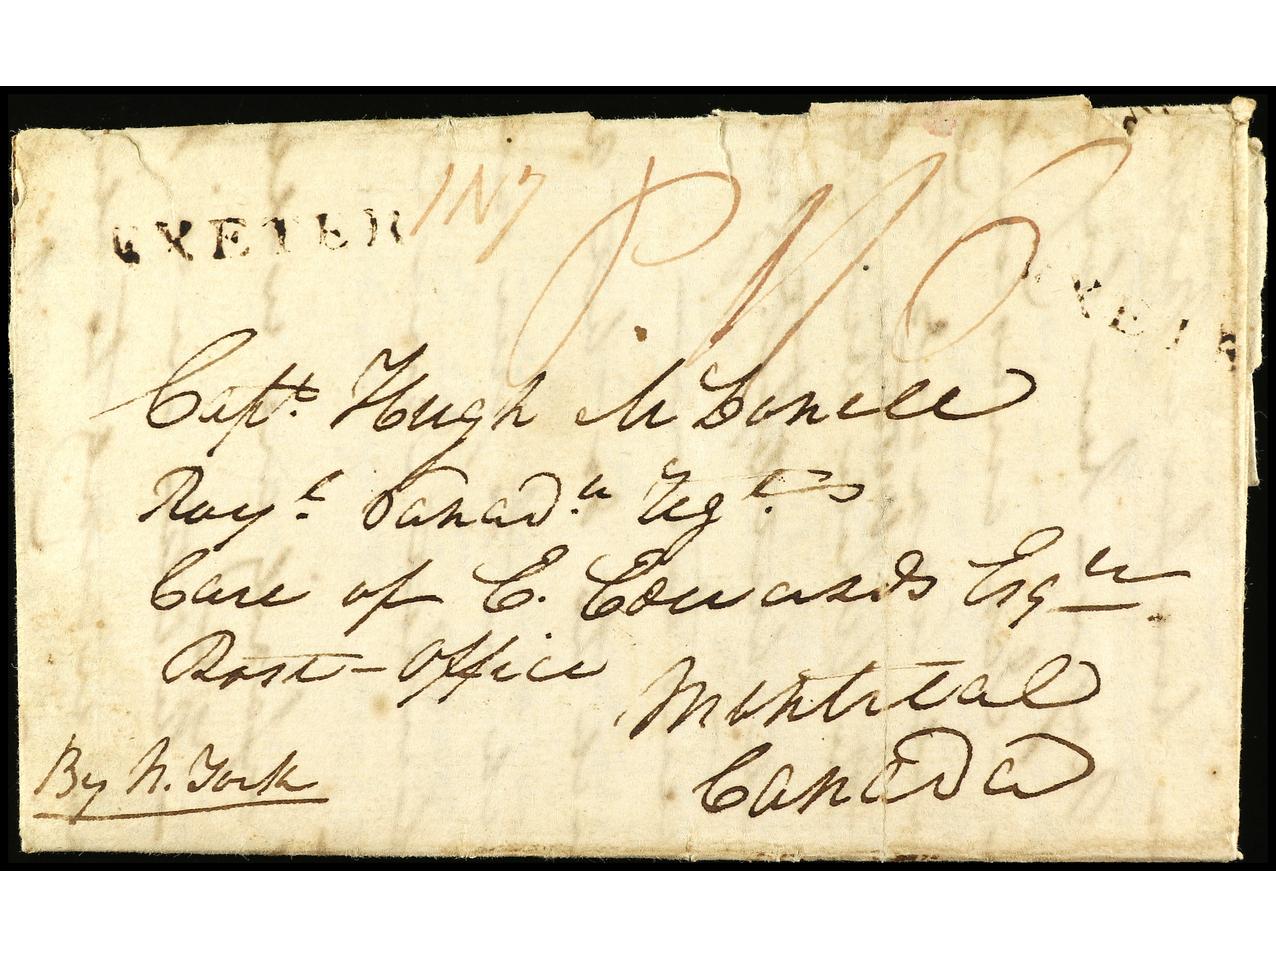 EXETER 1N7 P. 1/6
EXETE
Capt. Hugh McDonell
Roy.l Canad.n Regt.
Care of E. Edwards Esqr
Post-Office
Montreal
Canada
By N. York